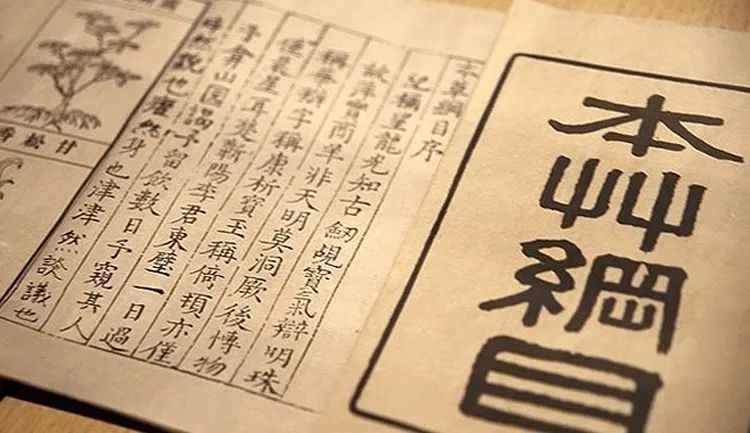 本艸綱目
本草綱目序
記稱星龍光知古劒覘寶氣辯明珠
故萍實商羊非天明莫洞厥後博物
稱華稱字稱康析寶玉稱倚頓亦僅
僅晨星耳楚蘄陽李君東壁一日過
予弇山園謁予留飲數日予窺其人
睟然說也癯然身也津津然談議也
甘松香